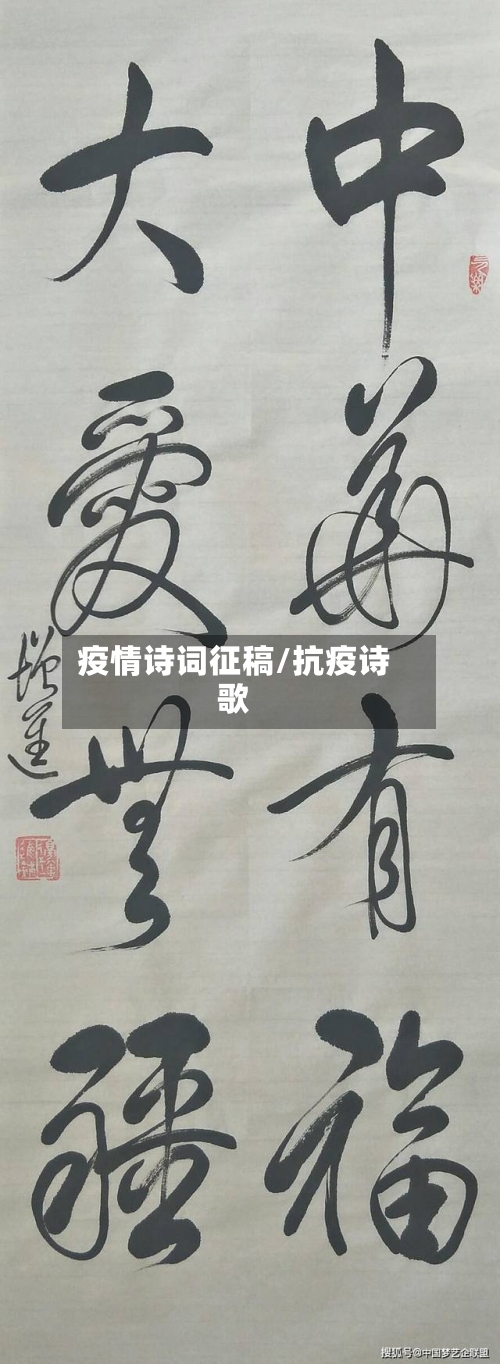 中華有福
大愛無疆
增進
疫情诗词征稿/抗疫诗
歌
搜狐号@中国梦艺企联盟